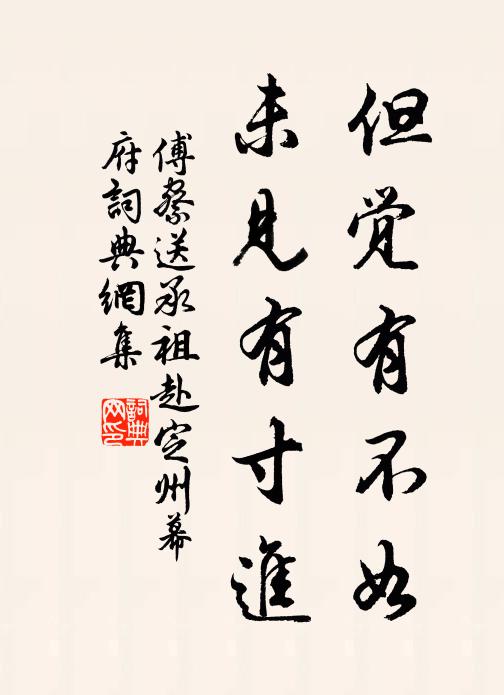 但觉有不如
未見有寸進
傅察送承祖赴定州幕
府詞典網集
詞典网印